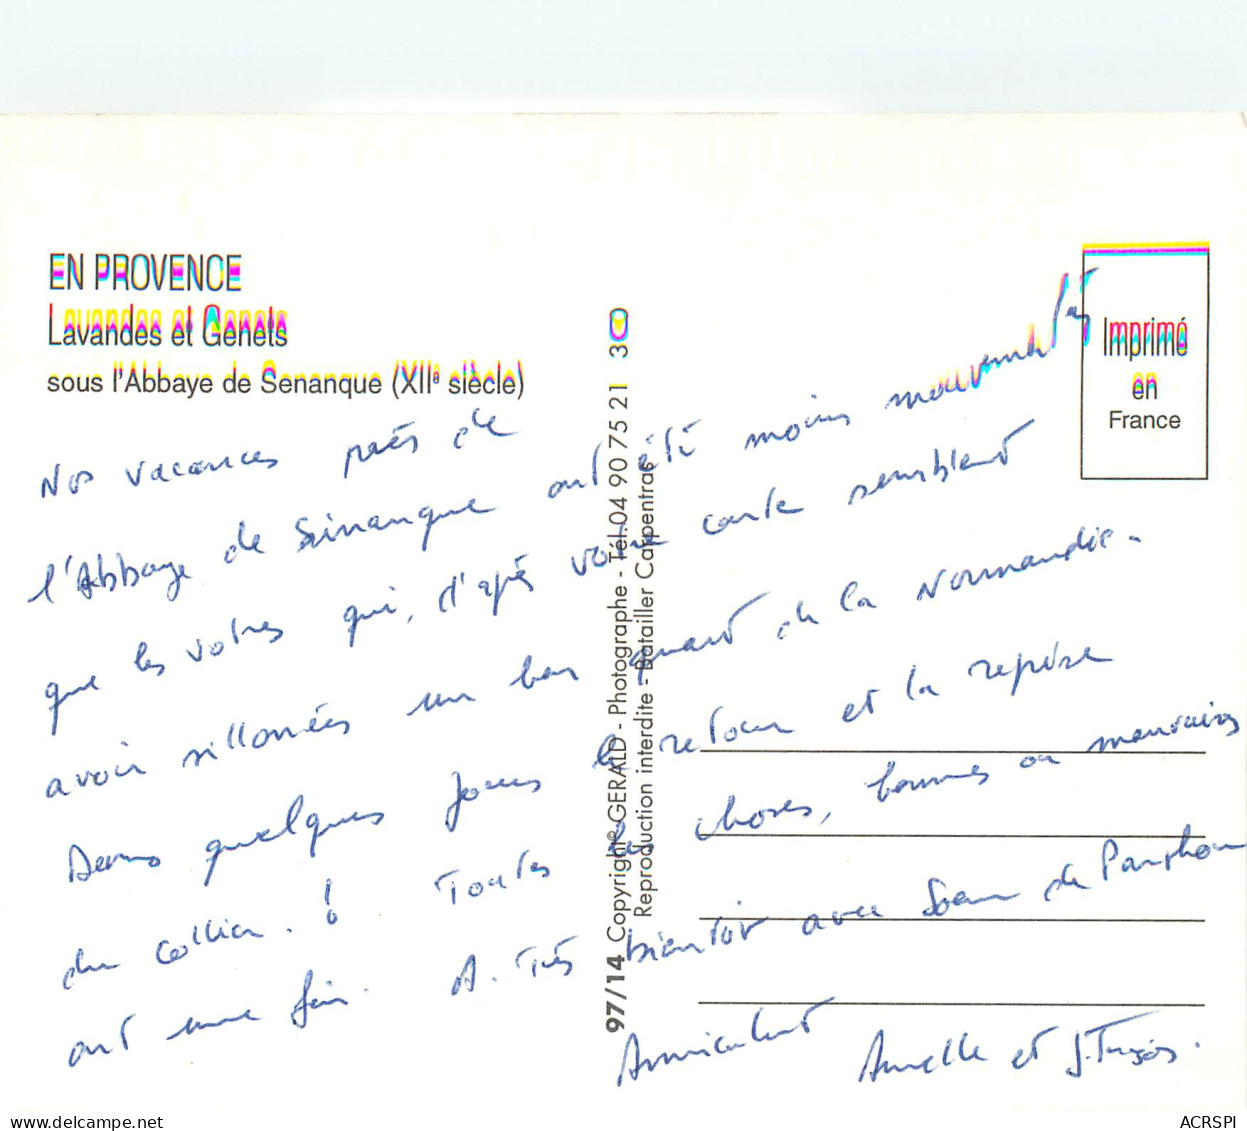 EN PROVENCE
Lavandes et Genets
sous l'Abbaye de Senanque (XIIe siècle)
Imprimé
en
France
97/14 Copyright GERALD - Photographe - Tél. 04 90 75 21 30
Reproduction interdite - Batailler Carpentras
Nos vacances près de
l'Abbaye de Sénanque ont été moins mouvementés
que les votres qui, d'après votre carte semblent
avoir sillonnées un bon quart de la Normandie.
Dans quelques jours le retour et la reprise
du collier ! Toutes les choses, bonnes ou mauvaises
ont une fin. A Très bientôt avec de
Amicalement
Armelle et
ACRSPI